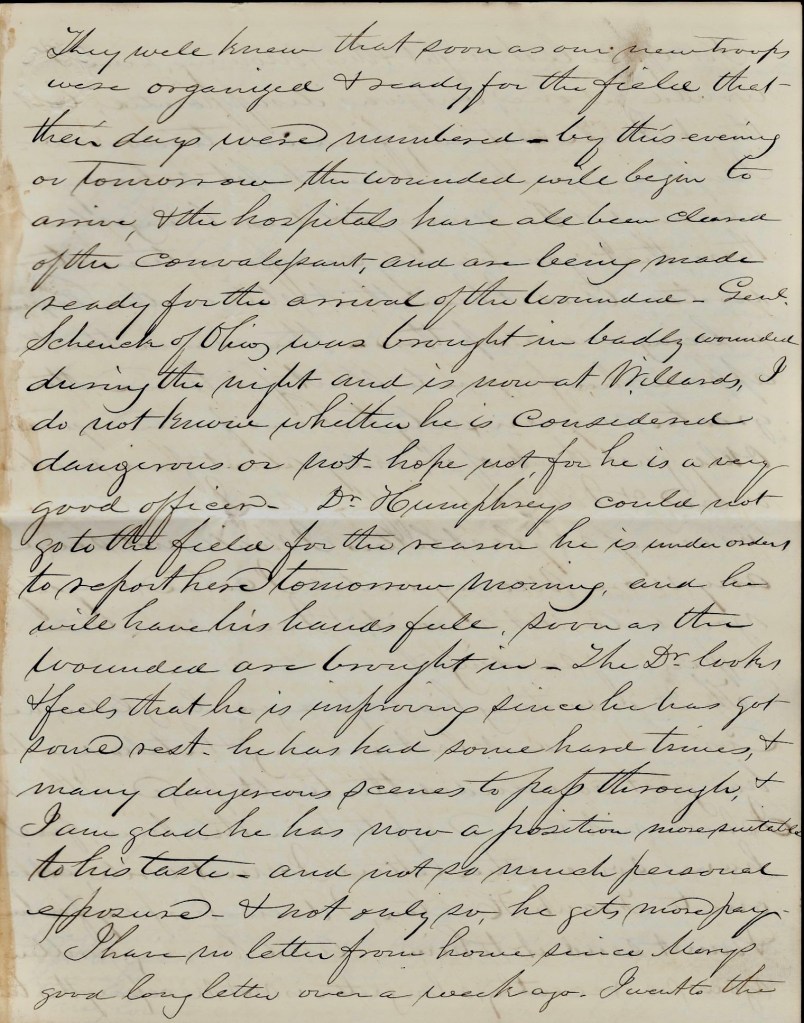 They well knew that soon as our new troops
were organized & ready for the field that
their days were numbered – by this evening
or tomorrow the wounded will begin to
arrive, & the hospitals have all been cleared
of the convalepant, and are being made
ready for the arrival of the wounded – Genl.
Schenck of Ohio, was brought in badly wounded
during the night and is now at Willards, I
do not know whither he is considered
dangerous or not – hope not, for he is a very
good officer – Dr. Humphreys could not
go to the field for the reason he is under orders
to report here tomorrow morning, and he
will have his hands full, soon as the
wounded are brought in – The Dr. looks
& feels that he is improving since he has got
some rest – he has had some hard times, &
many dangerous scenes to pass through, &
I am glad he has now a position more suitable
to his taste – and not so much personal
exposure – & not only so, he gets more pay –
I have no letter from home since Marys
good long letter over a week ago. I went to the